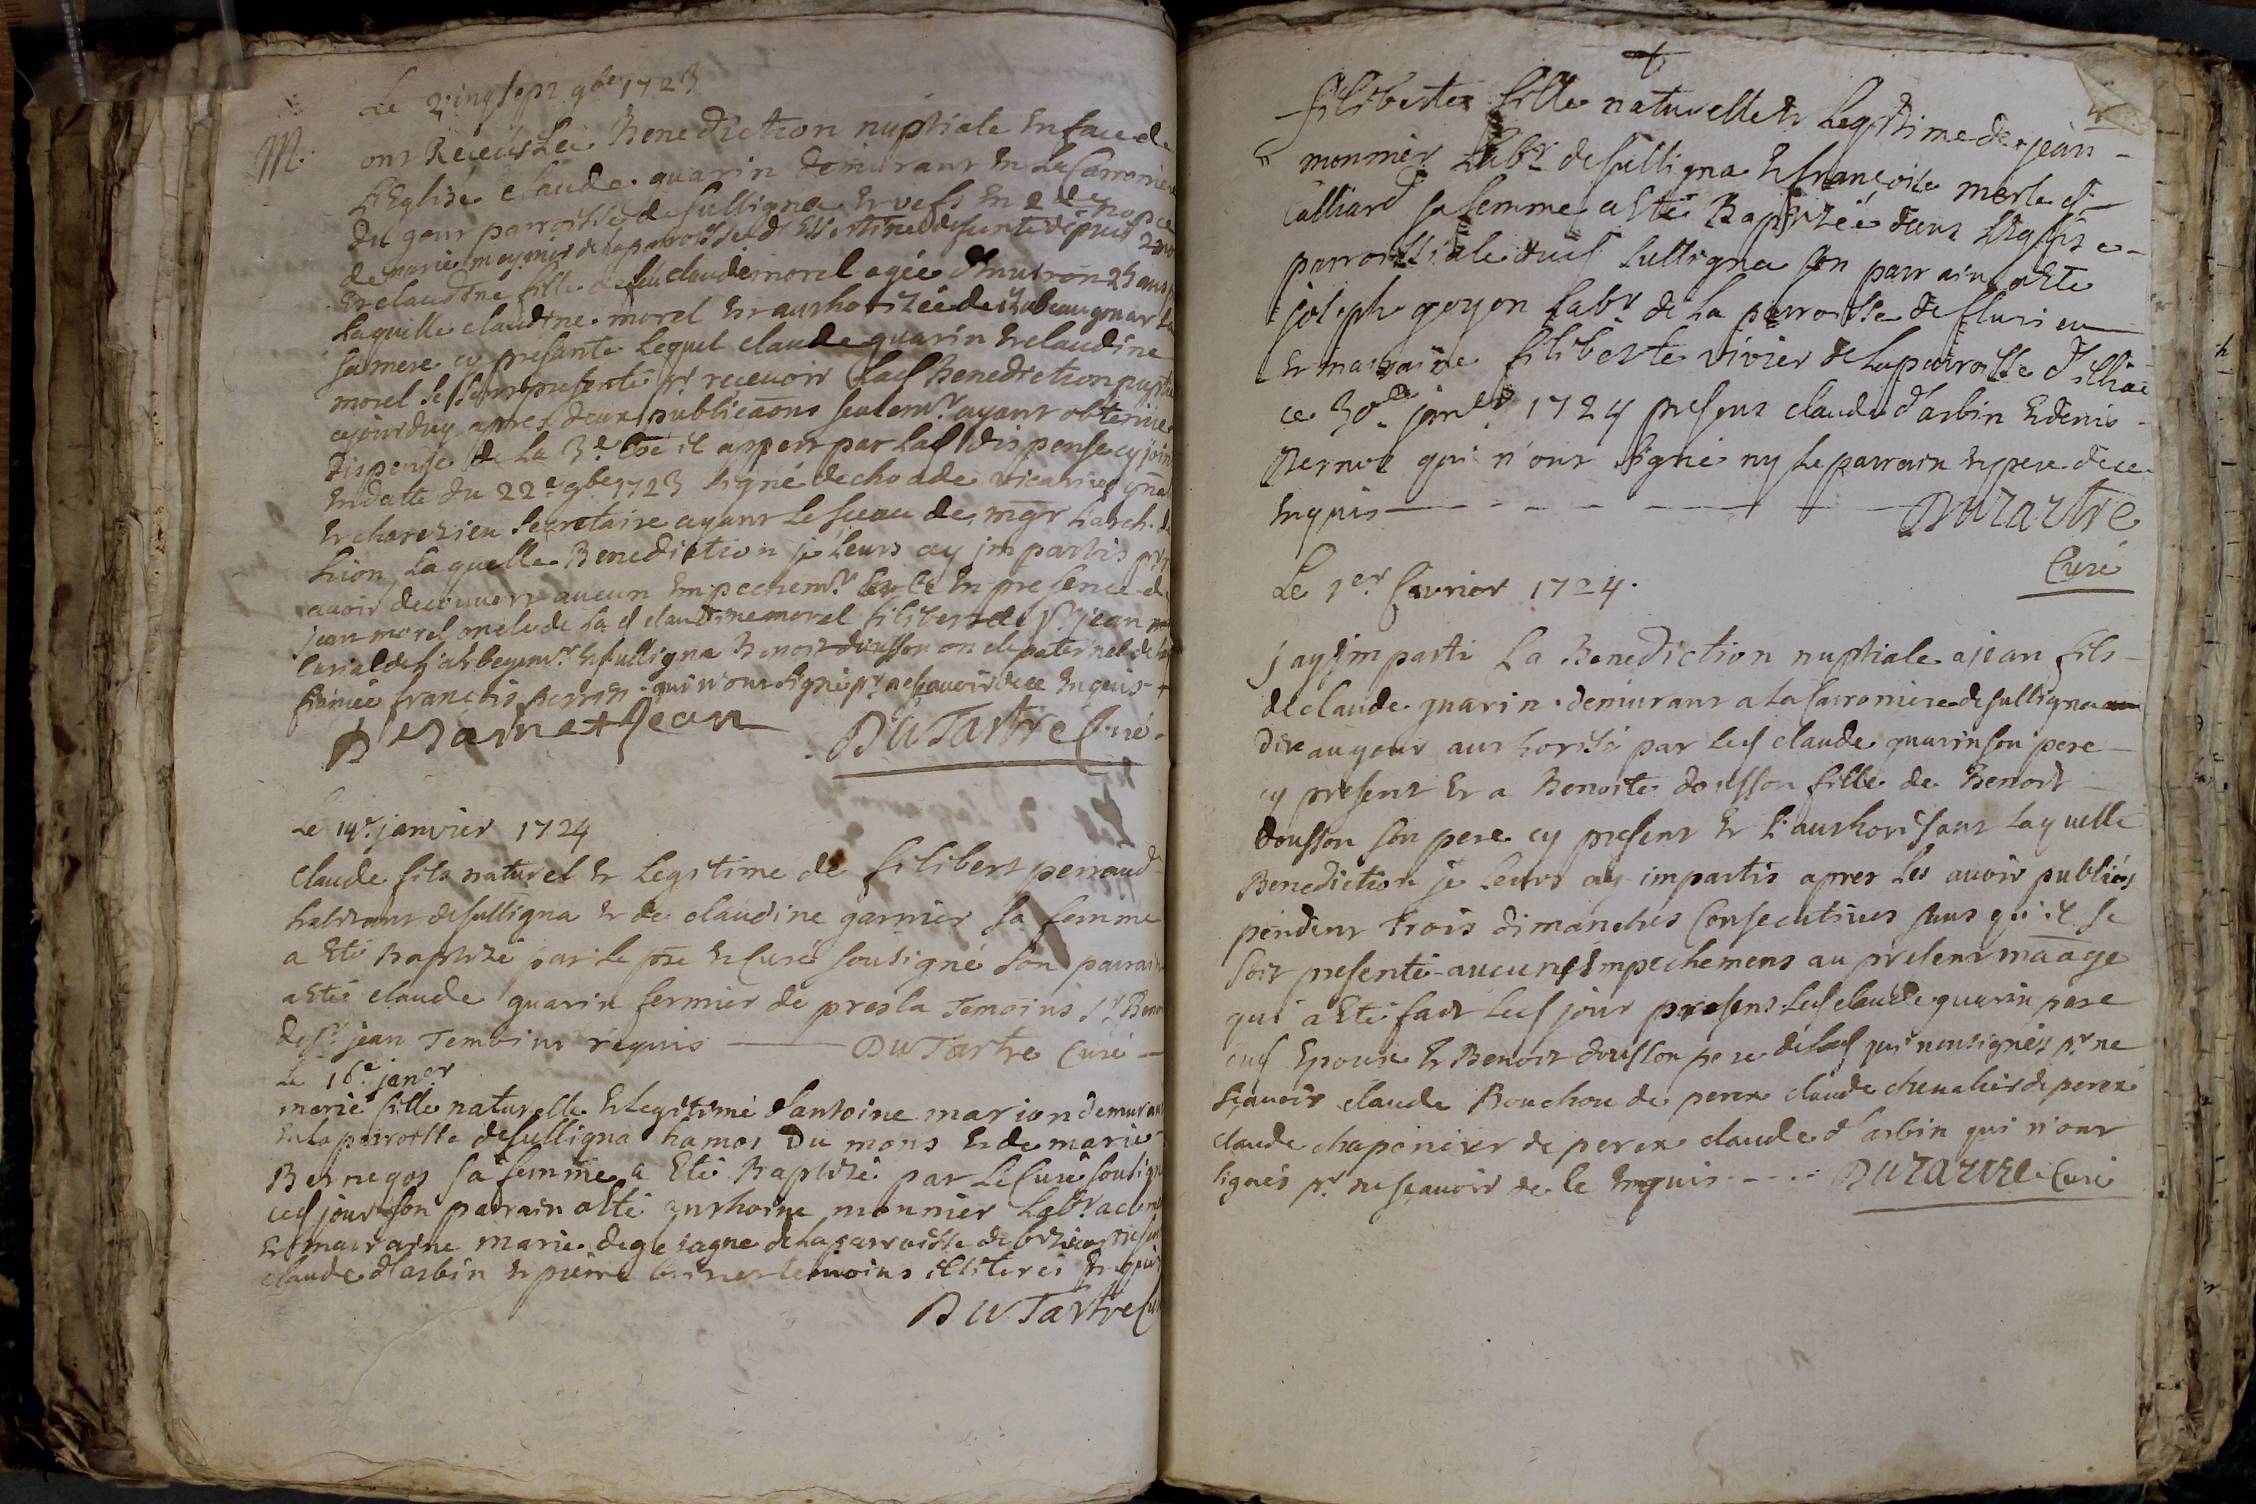 Le vingt sept 9bre 1723
M.
ont Receus La Benediction nuptiale En face de
L'Eglise claude guarin demurant En la Carroniere
du gour parroisse de sulligna Et vefs En 2de nopce
de marie meynier de la parroisse d' Essertine defunte depuis 2 ans
Et claudine fille de feu claude morel agée d'Environ 25 ans
Laquelle claudine morel Et authorisée de
sa mere cy presante Lequel claude guarin Et claudine
morel se sont presenté pr recevoir lad benediction nuptia
cejourduy apres deux publicaons seulemt ayant obtenue
dispense de la 3e Coe il appert par lad dispense cy join
En datte du 22e 9bre 1723 signé dechodde vicaire gnal
Et charezieu Secretaire ayant le sceau de mgr l'arch. de
Lion Laquelle Benediction je Leurs ay impartis
avoir decouvert aucun Empechemt En presence de
jean morel oncle de la d claudine morel filibert de st jean
Curial de Sulligna Benoit dousson oncle paternel de la
fiancée francois perrin qui n'ont signé pr ne scavoir de ce Enquis +
De Saint Jean DuTartre Curé

Le 14e janvier 1724
Claude fils naturel Et Legitime de filibert perraud
habitant de sulligna Et de claudine garnier sa femme
a Eté Baptizé par Le pre Et Curé sousigné son parrain
a Eté claude guarin fermier de presla Temoins Sr Beno
de st jean Temoins requis — DuTartre Curé —
Le 16e janer
marie fille naturelle Et legitime d'antoine marion demurant
En la parroisse de sulligna hamos Du mons Et de marie
Bernegos sa femme a Eté Baptizé par Le Curé sousigné
ced jour son parrain a Eté anthoine monnier Labr
Et marraine marie de la parroisse de
claude d'arbin Et pierre temoins illiteres Enquis
DuTartre Cu

+
filiberte fille naturelle Et Legitime de jean
monnier Labr de sulligna Et francoise merle dt
Calliard sa femme a Eté Baptizée dans L'Eglise
parroissiale dud sulligna son parrain a Eté
joseph goyon Labr de La parroisse de flurieu
Et marraine filiberte vivier de la parroisse d'illiac
ce 30e janer 1724 presents claude d'arbin Et denis
Bernol qui n'ont signé ny le parrain ny pere de ce
Enquis — DuTartre
Curé
Le 1er fevrier 1724.
j'ay imparti La Benediction nuptiale a jean fils
de claude guarin demurant a la Carroniere de sulligna
dite au gour authorisé par led claude guarin son pere
cy present Et a Benoite dousson fille de Benoit
dousson son pere cy present Et L'authorisant Laquelle
Benediction je Leurs ay impartis apres Les avoir publiés
pendent trois dimanches Consecutives sans qu'il se
soit presenté aucuns Empechemens au present maage
qui a Eté fait led jour presens led claude guarin pere
dud Epoux Et Benoit dousson pere de lad qui n'ont signés pr ne
sçavoir claude Bouchou de perex claude chevalier de perex
claude chaponier de perex claude d'arbin qui n'ont
signés pr ne sçavoir de ce Enquis - - - DuTartre Curé